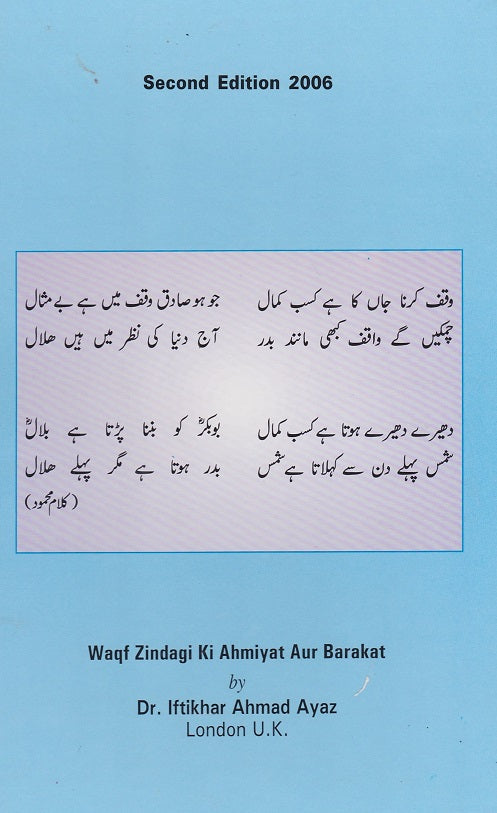 Second Edition 2006
وقف کرنا جاں کا ہے کسب کمال جو ہو صادق وقف میں ہے بے مثال
چمکیں گے واقف کبھی مانند بدر آج دنیا کی نظر میں ہیں ھلال
دھیرے دھیرے ہوتا ہے کسب کمال بوبکرؓ کو بننا پڑتا ہے بلالؓ
شمس پہلے دن سے کہلاتا ہے شمس بدر ہوتا ہے مگر پہلے ھلال
(کلام محمود)
Waqf Zindagi Ki Ahmiyat Aur Barakat
by
Dr. Iftikhar Ahmad Ayaz
London U.K.